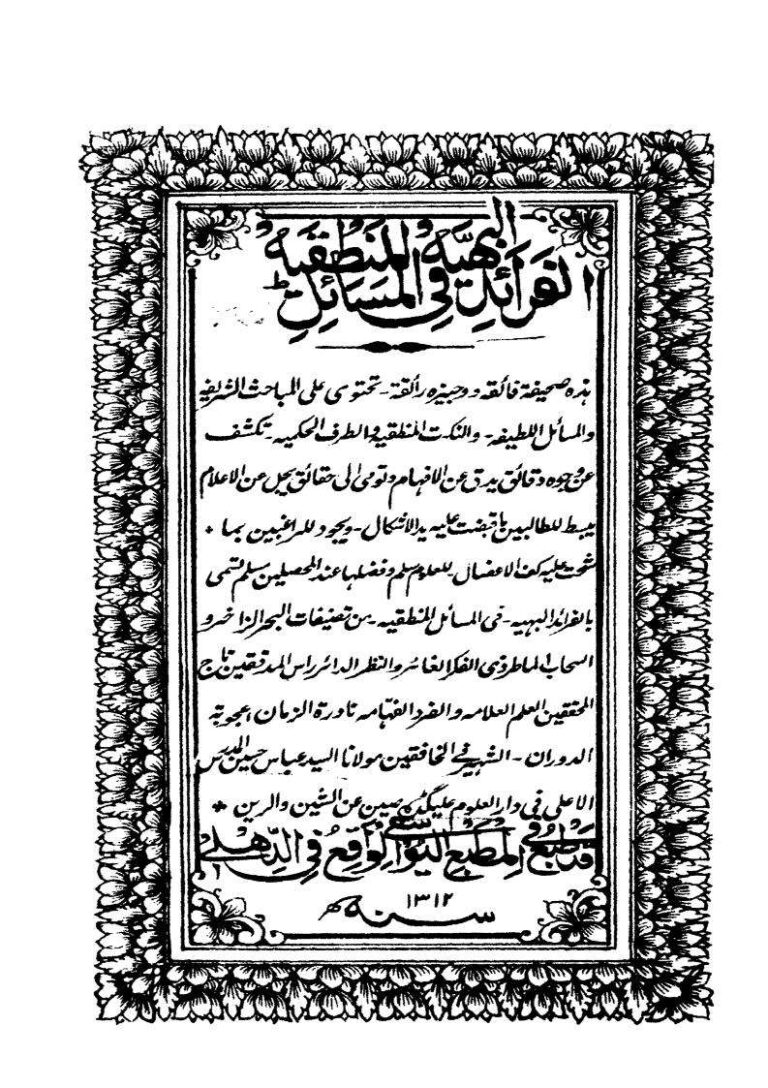 الفرائد البهية في المسائل المنطقية
هذه صحيفة فائقه ووجيزه رائقة - تحتوي على المباحث الشريفه
والمسائل اللطيفه - والنكت المنطقيه والطرف الحكميه - تكشف
عن وجوه دقائق يدق عن الافهام وتومى الى حقائق يجل عن الاعلام
يبسط للطالبين ما قبضت عليه يد الاشكال - ويجود للراغبين بما *
شحت عليه كف الاعضال - للعلوم سلم وفضلها عند المحصلين سلم تسمى
بالفرائد البهيه - فى المسائل المنطقيه - من تصنيفات البحر الزاخر و
السحاب الماطر ذى الفكر الغائر والنظر الدائر راس المدققين تاج
المحققين العلم العلامه والفرد الفهامه نادرة الزمان اعجوبة
الدوران - الشهير في الخافقين مولانا السيد عباس حسين المدرس
الاعلى فى دار العلوم عليگڈه صين عن الشين والرين *
قد طبع في المطبع اليوسفي الواقع في الدهلي
سنه ١٣١٢ ھ